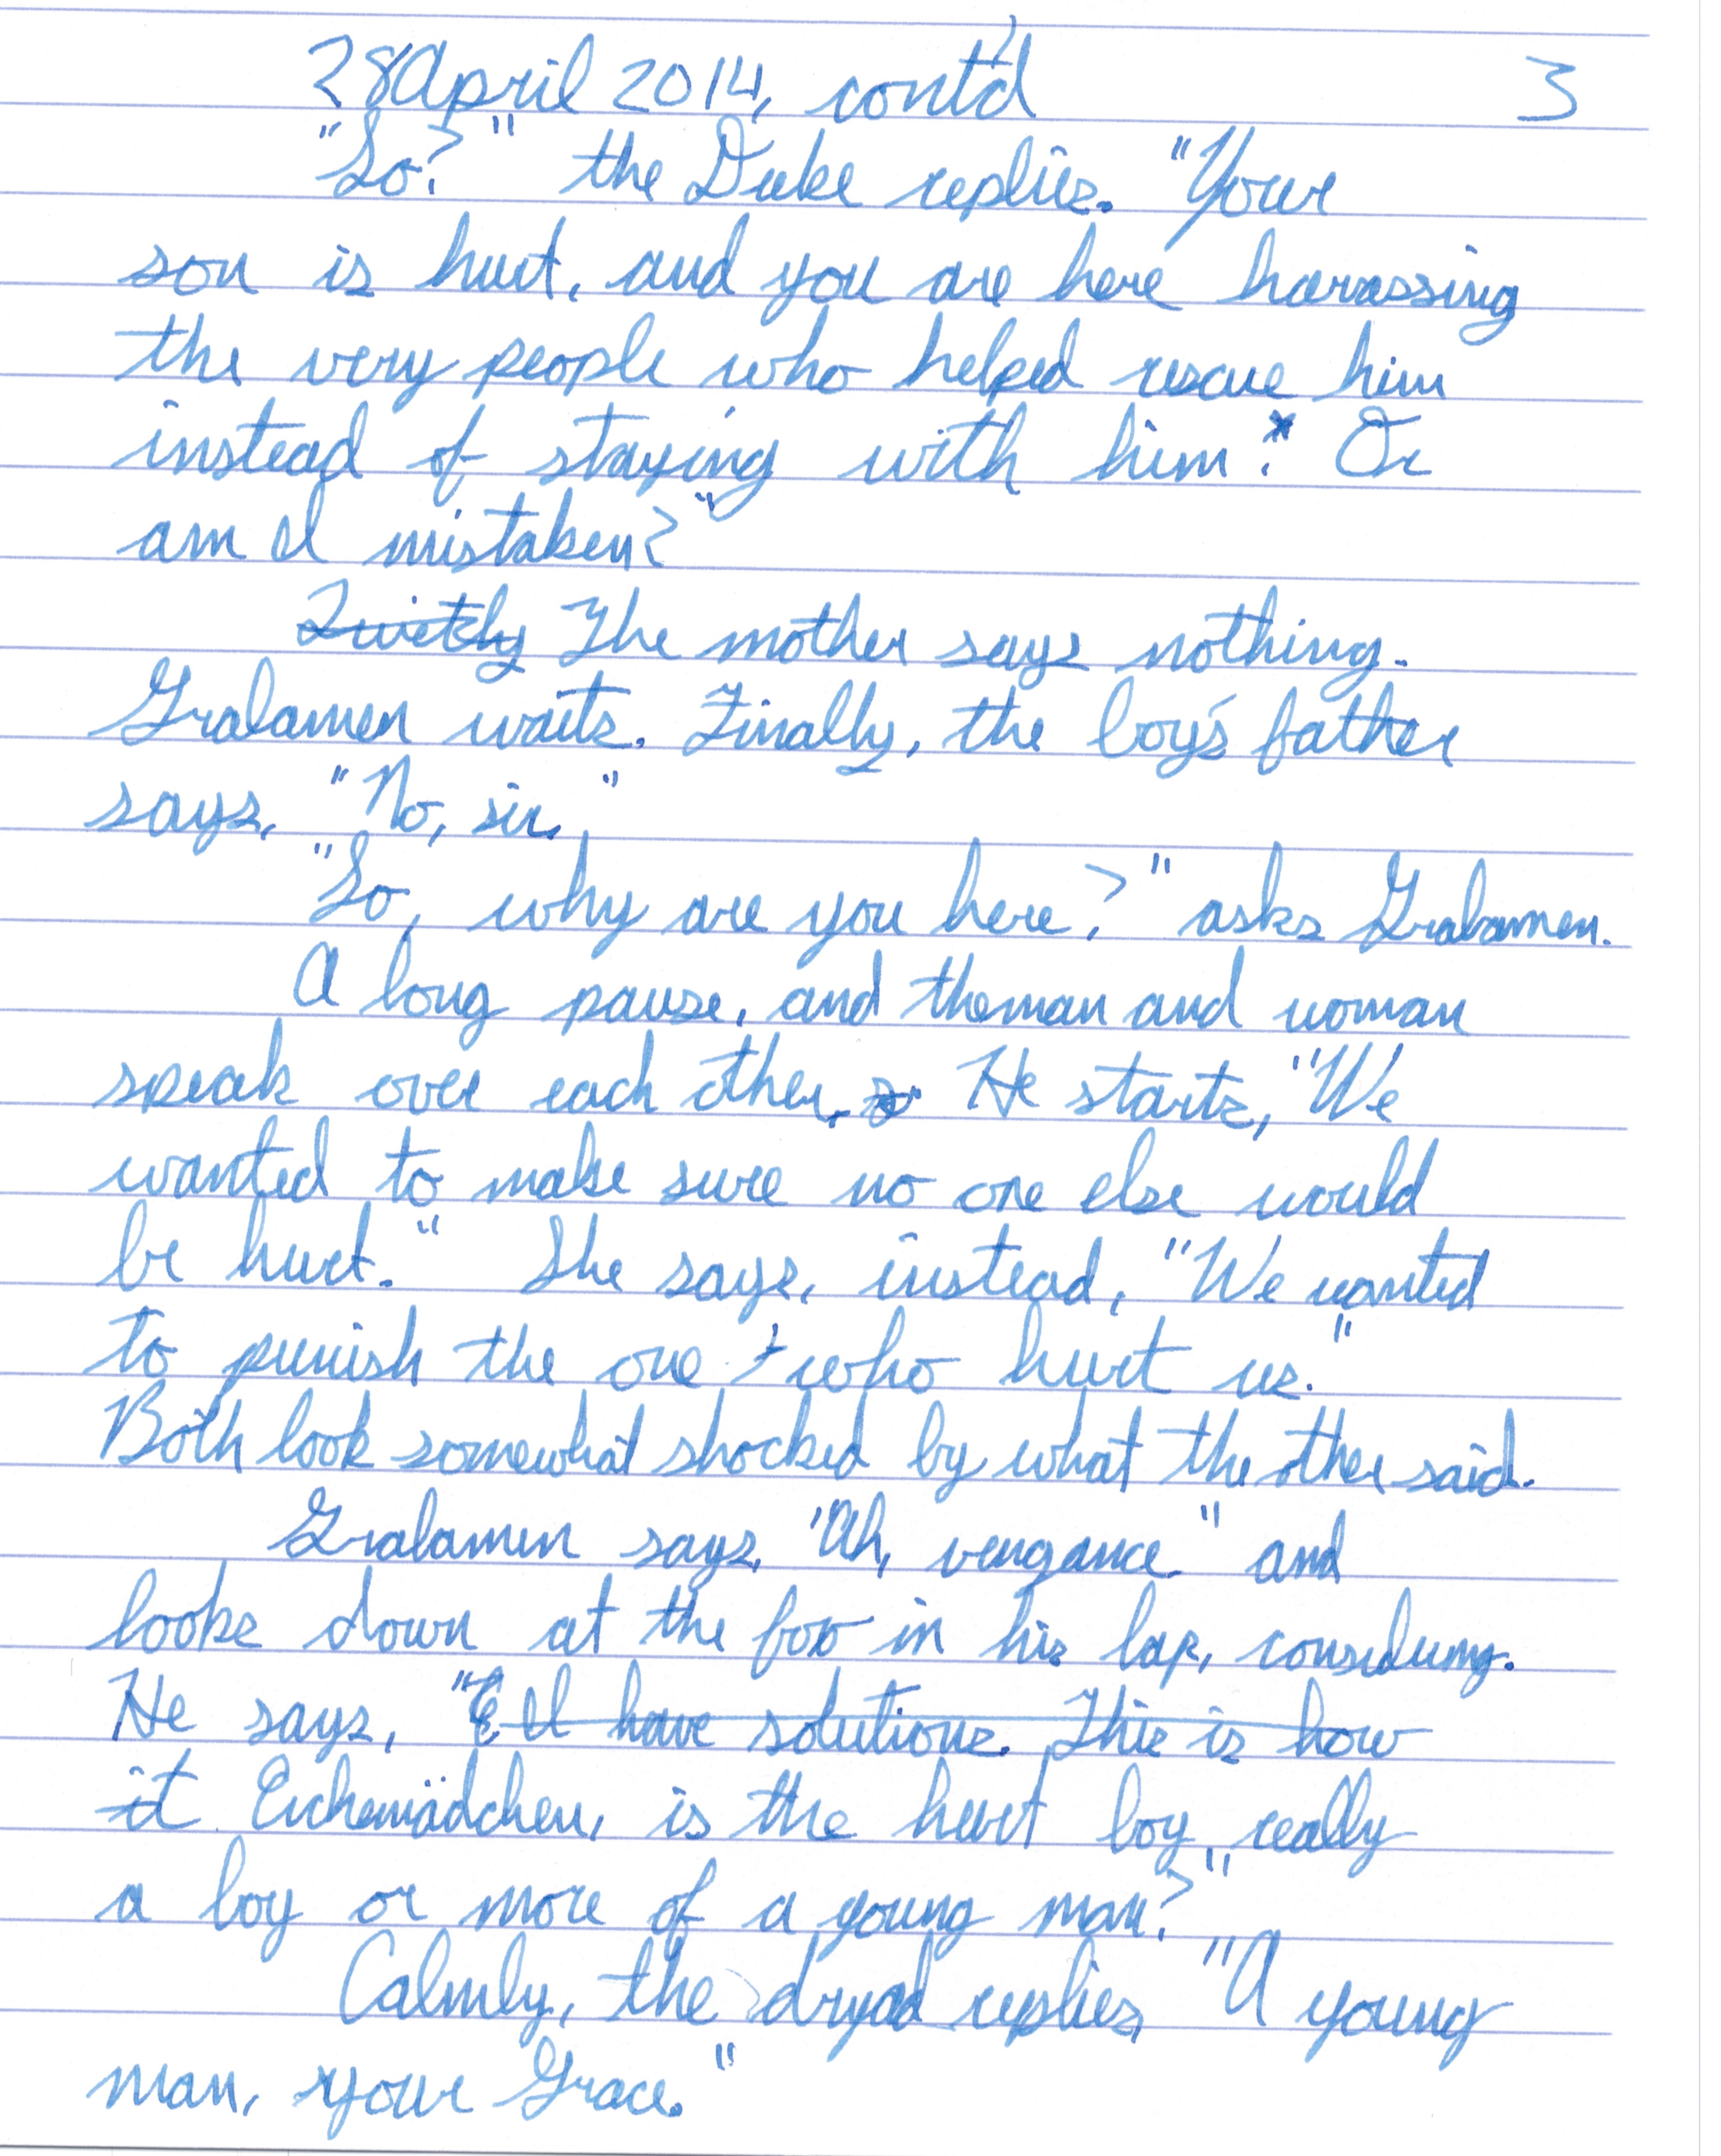 28 April 2014, cont'd 3
"So?" the Duke replies. "Your
son is hurt, and you are here harassing
the very people who helped rescue him
instead of staying with him. Or
am I mistaken?"
Quietly The mother says nothing.
Gralamen waits. Finally, the boy's father
says, "No, sir."
"So, why are you here?" asks Gralamen.
A long pause, and the man and woman
speak over each other. He starts, "We
wanted to make sure no one else would
be hurt." She says, instead, "We wanted
to punish the one who hurt us."
Both look somewhat shocked by what the other said.
Gralamen says, "Ah, vengance" and
looks down at the fox in his lap, considering.
He says, "E I have solutions. This is how
it Eichemädchen, is the hurt boy really
a boy or more of a young man?"
Calmly, the dryad replies, "A young
man, your Grace."